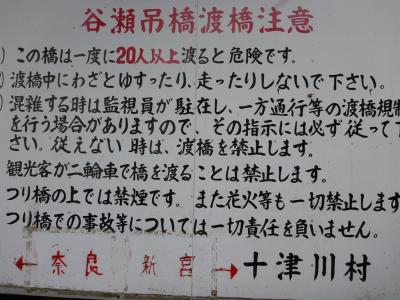 谷瀬吊橋渡橋注意
) この橋は一度に20人以上渡ると危険です。
) 渡橋中にわざとゆすったり、走ったりしないで下さい。
) 混雑する時は監視員が駐在し、一方通行等の渡橋規制
を行う場合がありますので、その指示には必ず従って下
さい。従えない時は、渡橋を禁止します。
観光客が二輪車で橋を渡ることは禁止します。
つり橋の上では禁煙です。また花火等も一切禁止します。
つり橋での事故等については一切責任を負いません。
← 奈良 新宮 → 十津川村